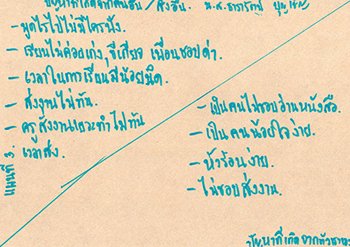 ปัญหาที่เกิดจากคนอื่น / สิ่งอื่น. น.ส.
- พูดไรไปไม่มีใครฟัง.
- เรียนไม่ค่อยเก่ง, ขี้เกียจ เพื่อนชอบด่า.
- เวลาในการเรียนมีน้อยนิด.
- ส่งงานไม่ทัน.
- ครูสั่งงานเยอะทำไม่ทัน
เวลาส่ง.
แผนที่ 3.
- เป็นคนไม่ชอบอ่านหนังสือ.
- เป็นคนน้อยใจง่าย.
- หัวร้อนง่าย.
- ไม่ชอบส่งงาน.
ปัญหาที่เกิดจากตัว